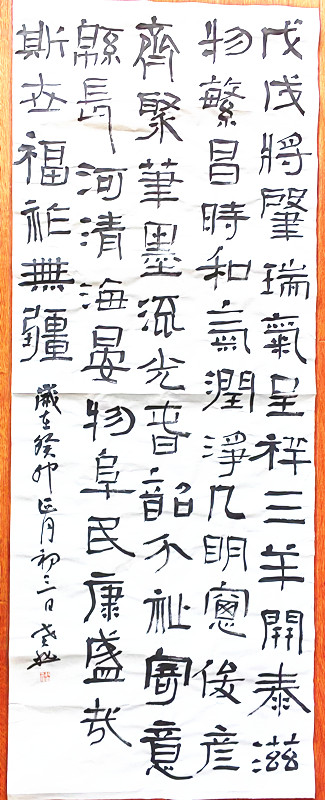 戊戌將肇瑞氣呈祥三羊開泰滋
物繁昌時和氣潤淨几明窗俊彥
齊聚筆墨流光旾韶介祉寓意
緜長河清海晏物阜民康盛哉
斯世福祚無疆
歲在癸卯正月初三日